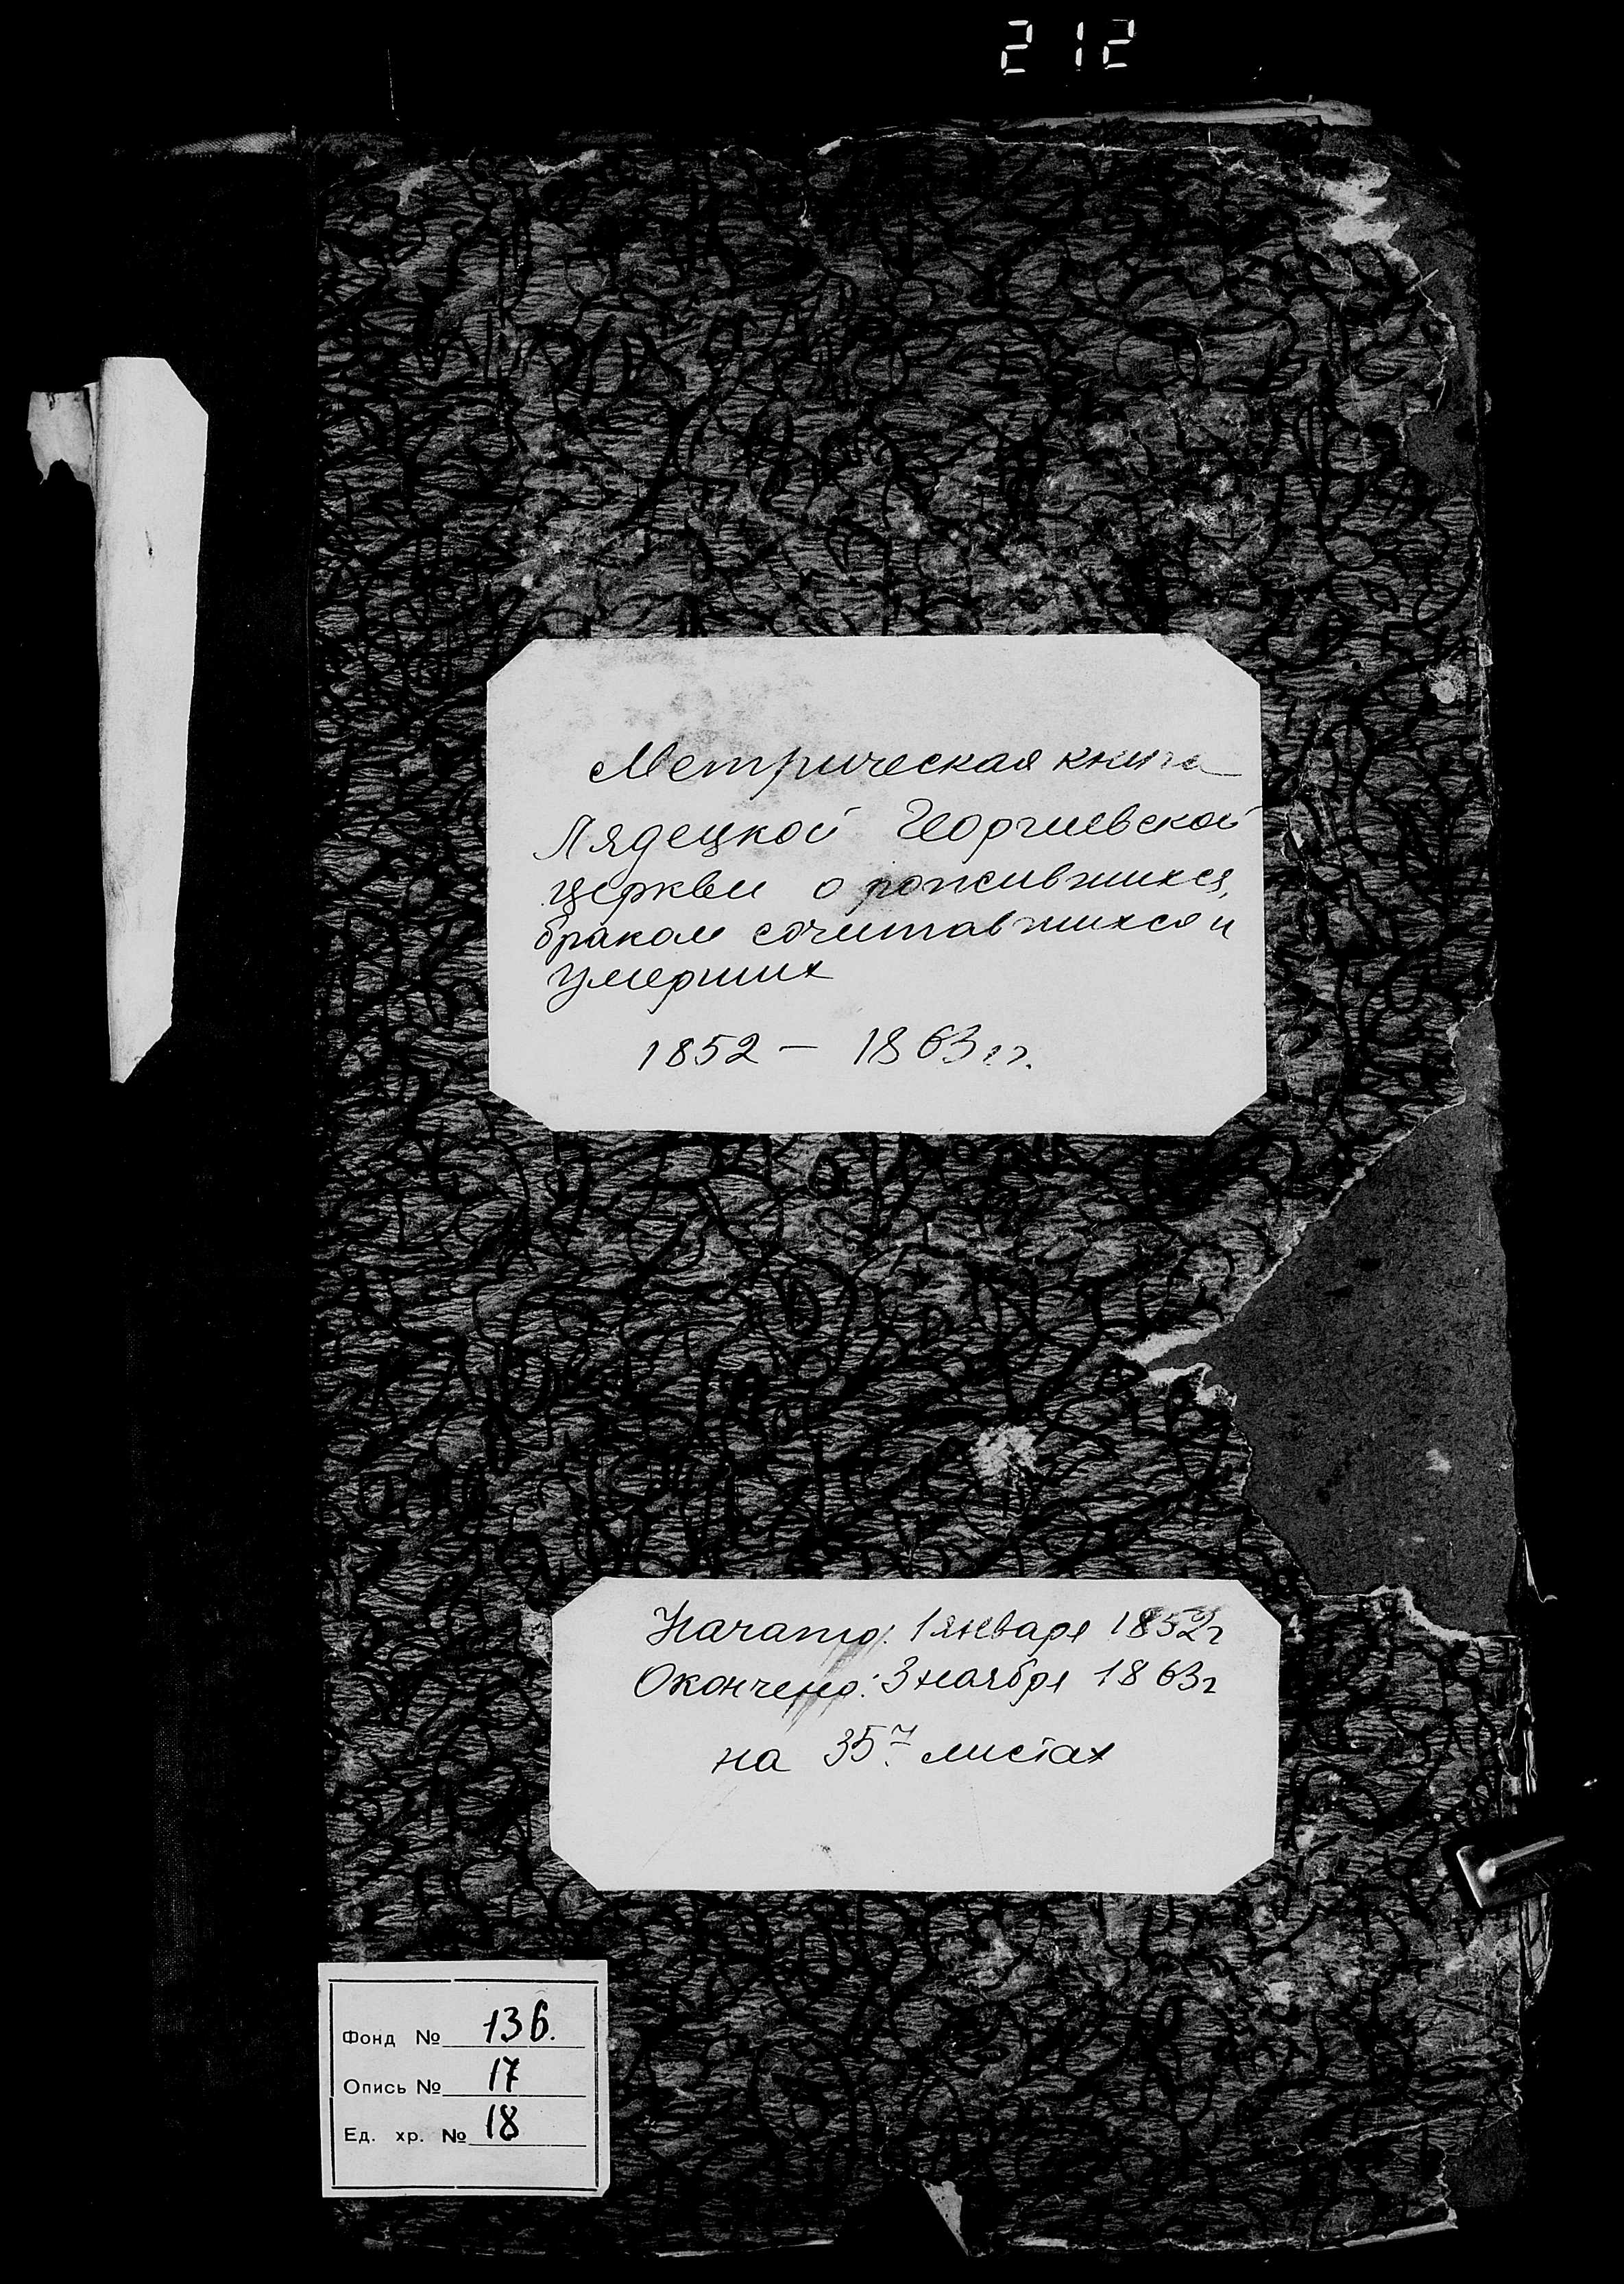 212
Метрическая книга
Лядецкой Георгиевской
церкви о рожившихся,
браком сочитавшихся и
умерших
1852 – 1863 гг.
Начато: 1 января 1852г
Окончено: 3 ноября 1863г
на 357. листах
Фонд № 136.
Опись № 17
Ед. хр. № 18